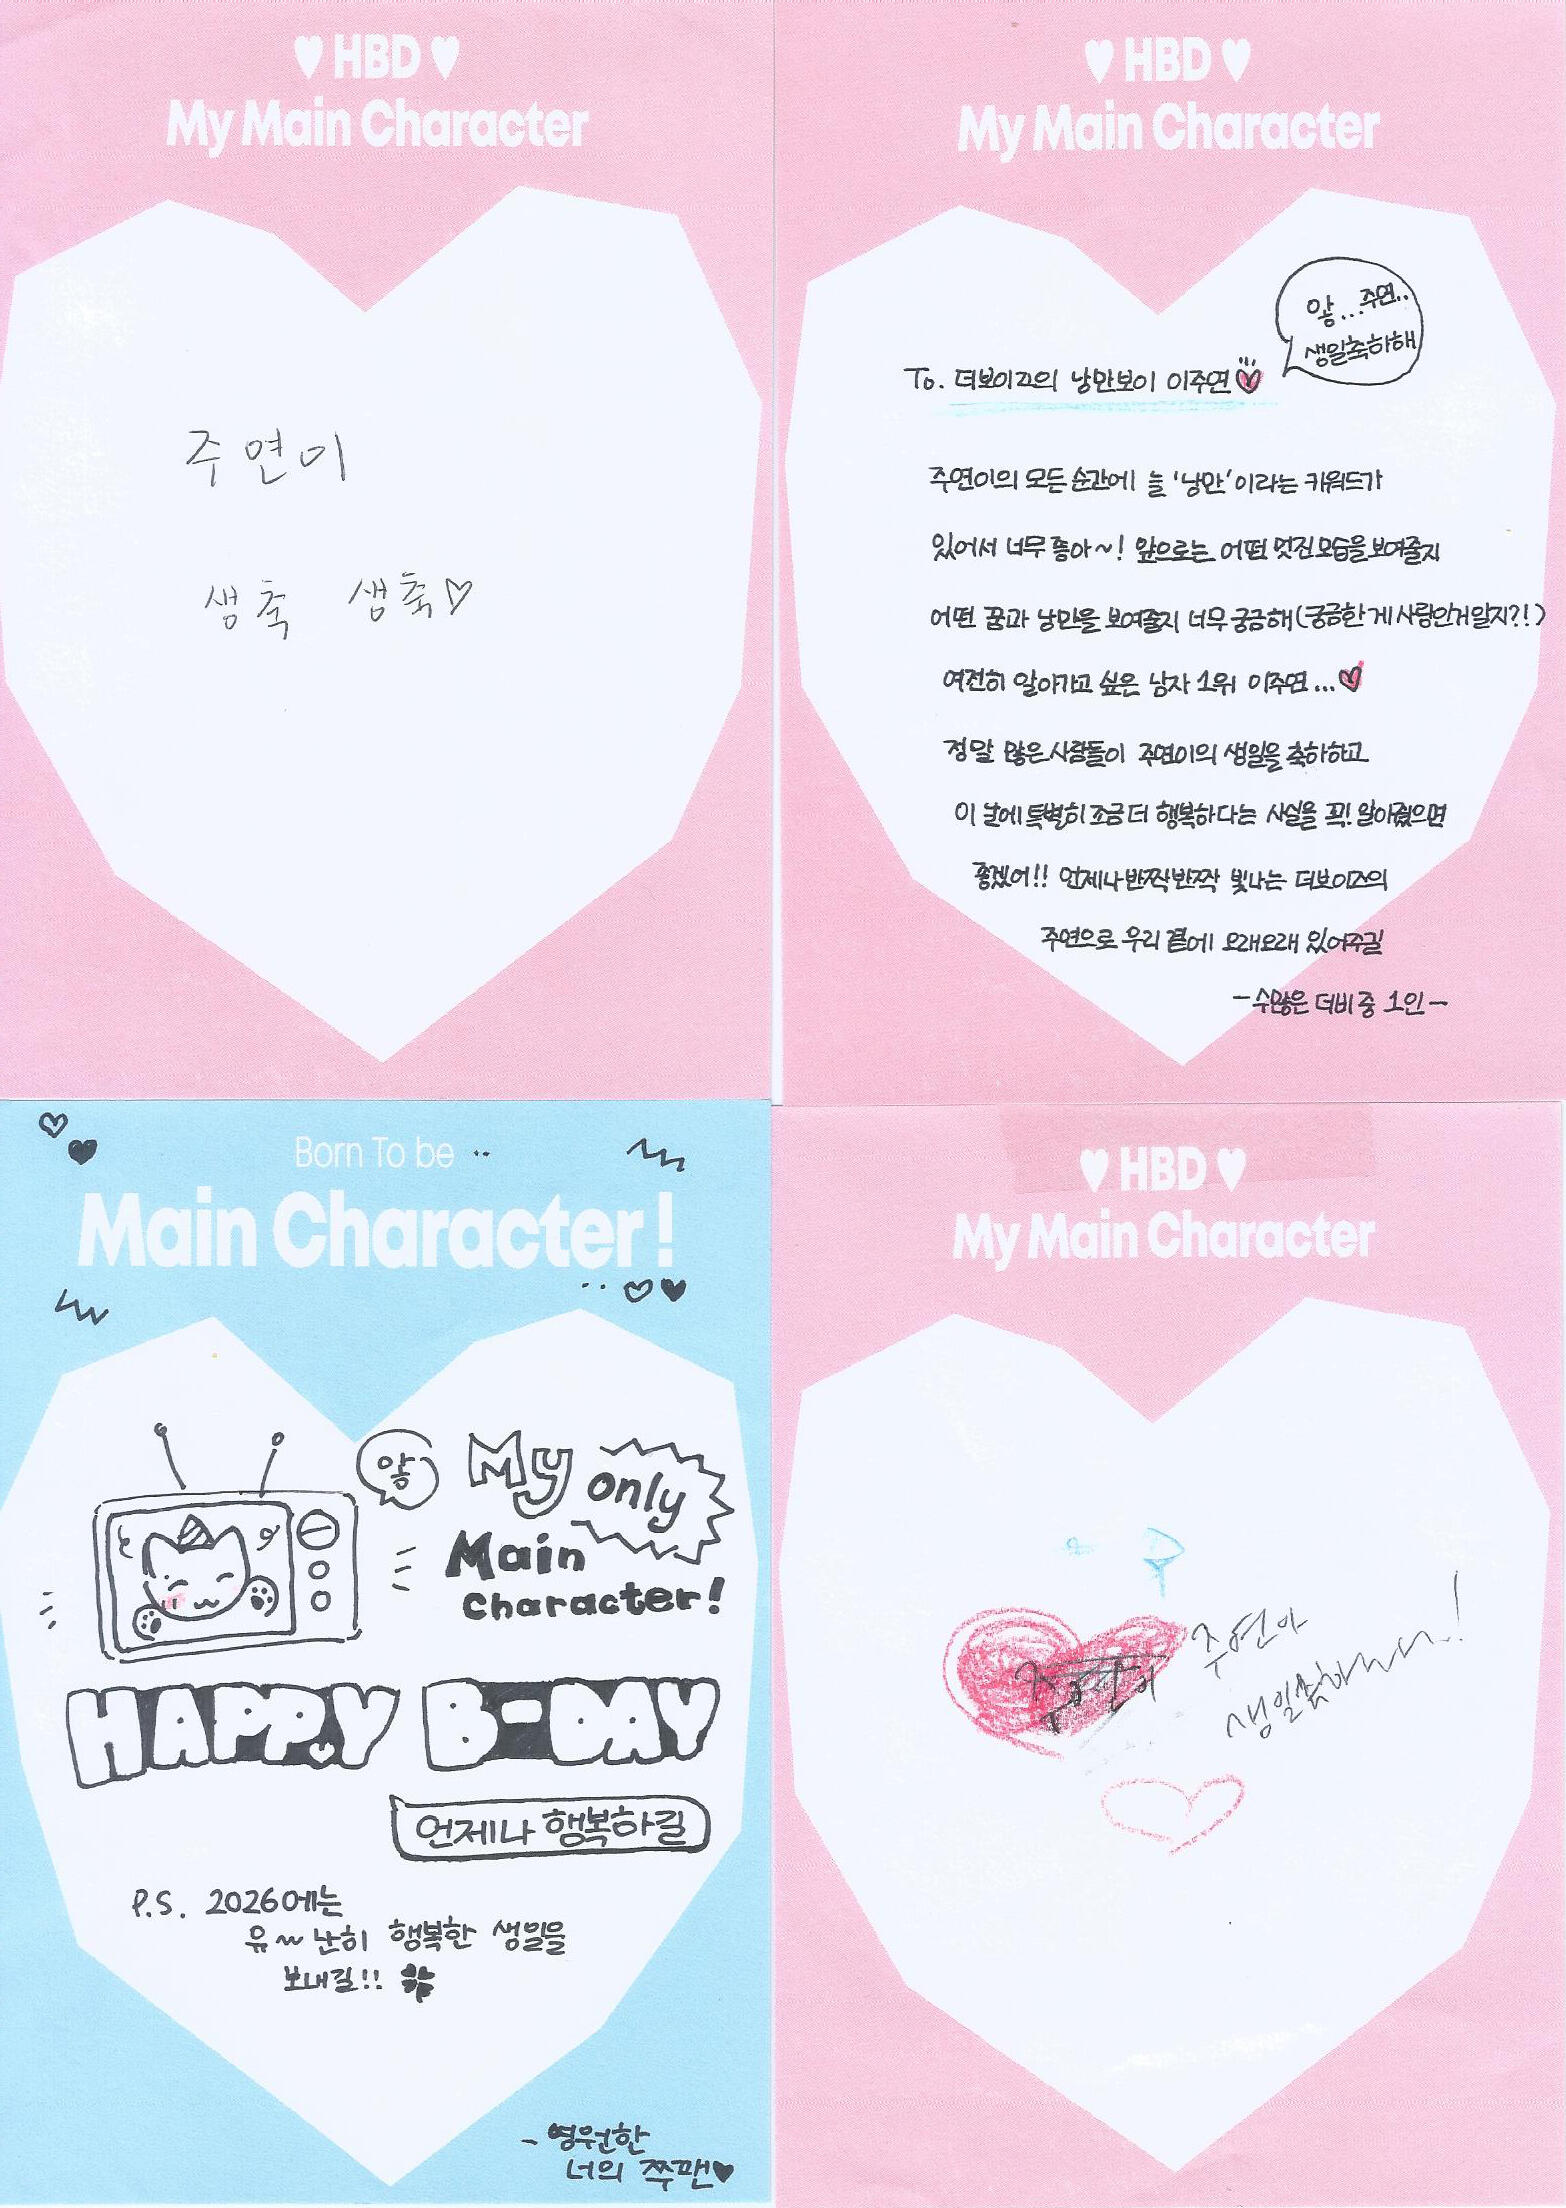 ♥ HBD ♥
My Main Character
주연이
생축 생축♡
♥ HBD ♥
My Main Character
앟...주연..
생일축하해
To. 더보이즈의 낭만보이 이주연♡
주연이의 모든 순간에 늘 '낭만'이라는 키워드가
있어서 너무 좋아~! 앞으로는 어떤 멋진모습을보여줄지
어떤 꿈과 낭만을 보여줄지 너무 궁금해(궁금한 게 사랑인거일지?!)
여전히 알아가고 싶은 남자 1위 이주연...♡
정말 많은사람들이 주연이의 생일을 축하하고
이 날에 특별히 조금 더 행복하다는 사실을 꼭! 알아줬으면
좋겠어!! 언제나반짝반짝 빛나는 더보이즈의
주연으로 우리 곁에 오래오래 있어주길
-수많은 더비 중 1인-
Born To be
Main Character!
앟
My only
Main
Character!
HAPPY B-DAY
언제나 행복하길
P.S. 2026에는
유~난히 행복한 생일을
보내길!!
- 영원한
너의 쭈팬♥
♥ HBD ♥
My Main Character
주연아